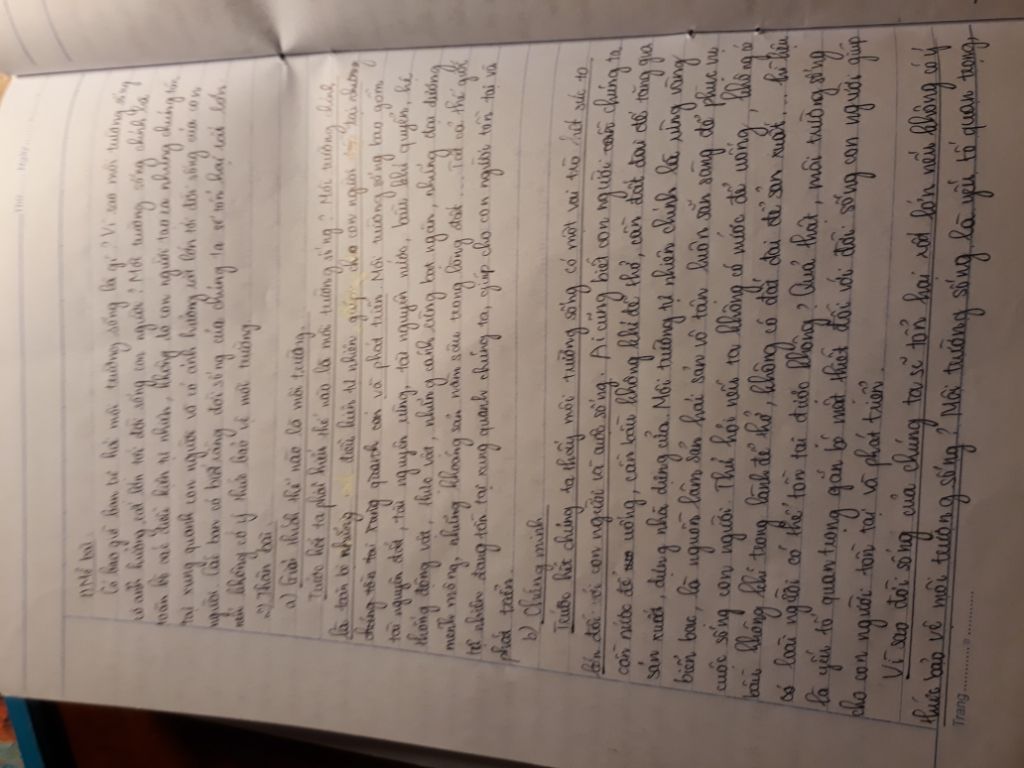 Thứ ............ Ngày ............
1) Mở bài.
Có bao giờ bạn tự hỏi môi trường sống là gì? Vì sao môi trường sống
có ảnh hưởng rất lớn tới đời sống con người? Môi trường sống chính là
toàn bộ các điều kiện tự nhiên, không là con người tạo ra nhưng chúng tồn
tại xung quanh con người và có ảnh hưởng rất lớn tới đời sống của con
người. Các bạn có biết rằng đời sống của chúng ta sẽ tổn hại rất lớn
nếu không có ý thức bảo vệ môi trường.
2) Thân bài.
a) Giải thích thế nào là môi trường.
Trước hết ta phải hiểu thế nào là môi trường sống? Môi trường chính
là toàn bộ những điều kiện tự nhiên giúp cho con người tạo nhưng
chúng tồn tại xung quanh con và phát triển. Môi trường sống bao gồm
tài nguyên đất, tài nguyên rừng, tài nguyên nước, bầu khí quyển, hệ
thống động vật, thực vật, những cánh rừng bạt ngàn, những đại dương
mênh mông, những khoáng sản nằm sâu trong lòng đất... Tất cả thế giới
tự nhiên đang tồn tại xung quanh chúng ta, giúp cho con người tồn tại và
phát triển.
b) Chứng minh
Trước hết chúng ta thấy môi trường sống có một vai trò hết sức to
lớn đối với con người và cuộc sống. Ai cũng biết con người chúng ta
cần nước để uống, cần bầu không khí để thở, cần đất đai để tăng gia
sản xuất, dựng nhà dựng cửa. Môi trường tự nhiên chính là rừng vàng
biển bạc, là nguồn lâm sản hải sản vô tận luôn sẵn sàng để phục vụ
cuộc sống con người. Thử hỏi nếu ta không có nước để uống, không có
bầu không khí trong lành để thở, không có đất đai để sản xuất... thì liệu
có loài người có thể tồn tại được không? Quả thật, môi trường sống
là yếu tố quan trọng gắn bó mật thiết đối với đời sống con người giúp
cho con người tồn tại và phát triển.
Vì sao đời sống của chúng ta sẽ tổn hại rất lớn nếu không có ý
thức bảo vệ môi trường sống? Môi trường sống là yếu tố quan trọng
Trang ............